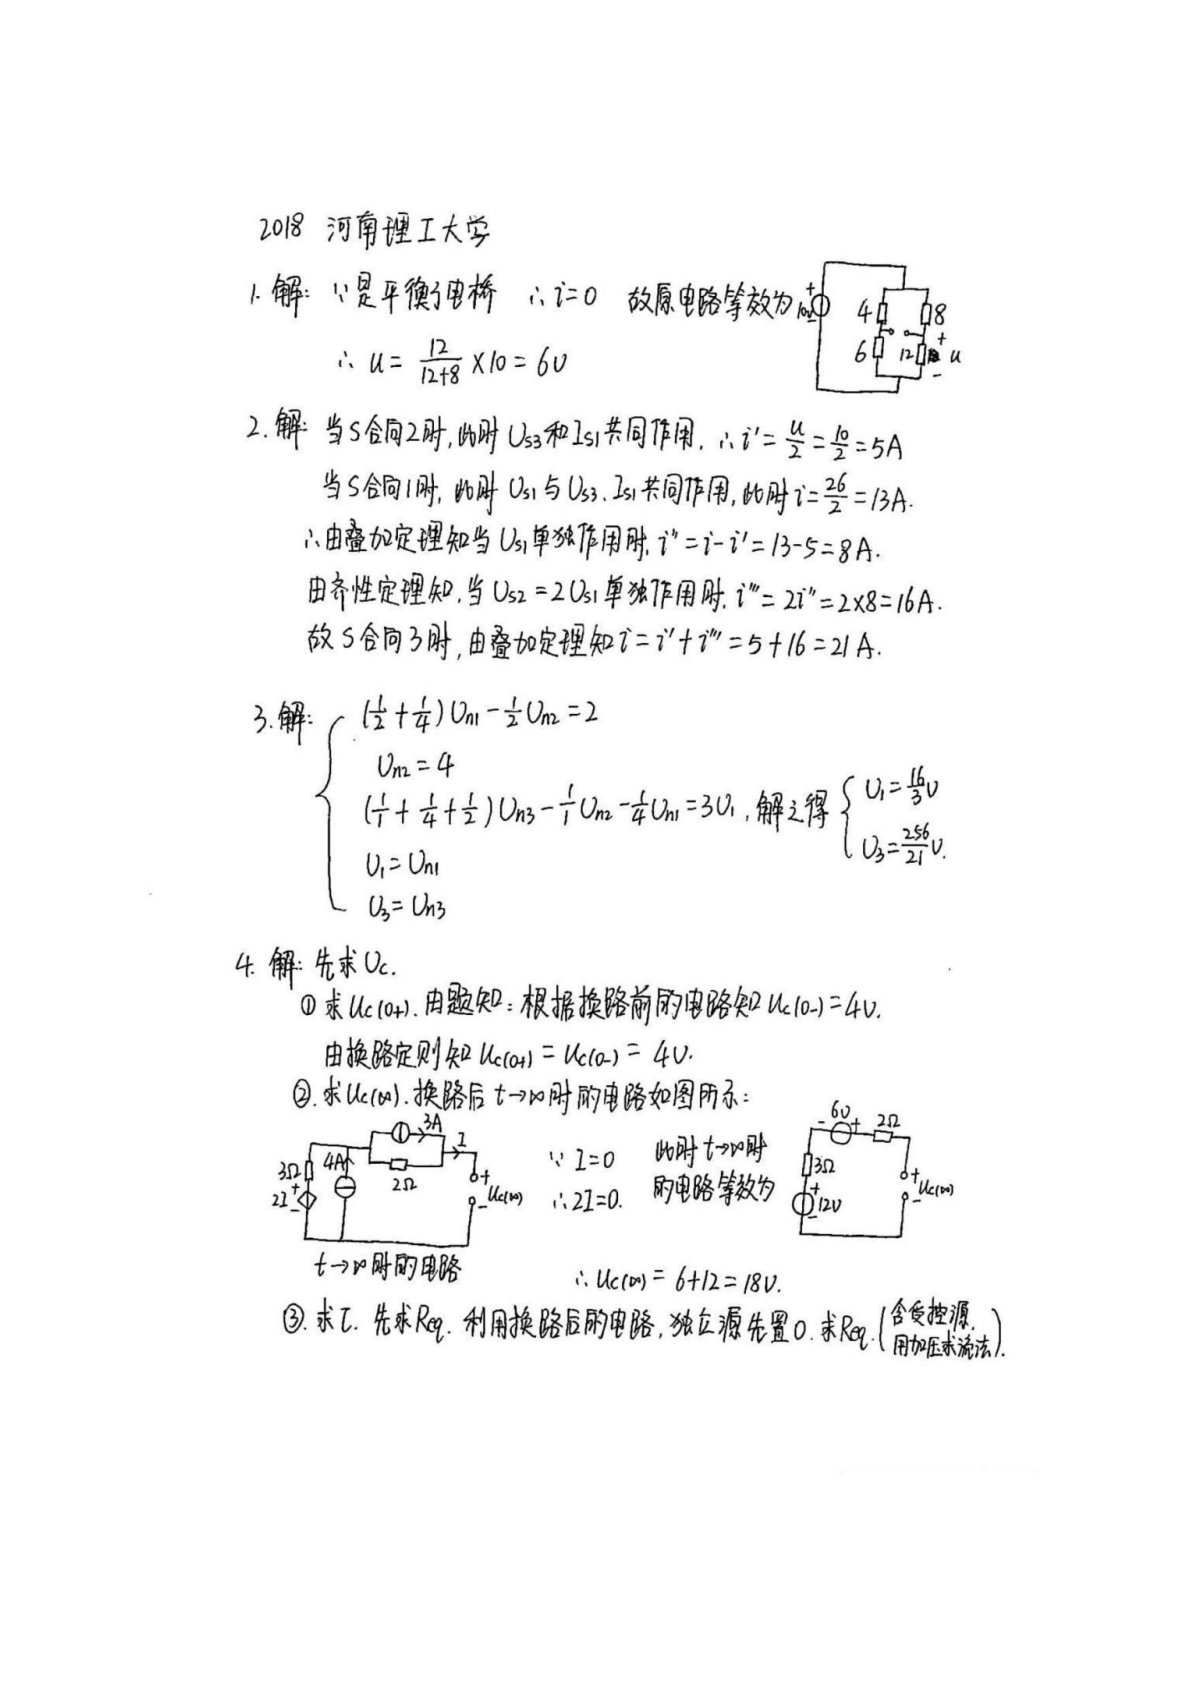 2018 河南理工大学
1. 解: ∵是平衡电桥 ∴i=0 故原电路等效为
10V + - 4 8 6 12 + u -
∴ u = 12/(12+8) ×10 = 6V
2. 解: 当S合向2时,此时Us3和Is1共同作用. ∴i' = u/2 = 10/2 = 5A
当S合向1时, 此时 Us1与Us3、Is1共同作用,此时 i = 26/2 = 13A.
∴由叠加定理知当Us1单独作用时, i'' = i-i' = 13-5 = 8A.
由齐性定理知,当 Us2 = 2Us1 单独作用时, i''' = 2i'' = 2×8 = 16A.
故S合向3时,由叠加定理知 i = i'+i''' = 5+16 = 21A.
3. 解:
(1/2 + 1/4) Un1 - 1/2 Un2 = 2
Un2 = 4
(1/1 + 1/4 + 1/2) Un3 - 1/1 Un2 - 1/4 Un1 = 3U1, 解之得
U1 = Un1
U3 = Un3
U1 = 16/3 V
U3 = 256/21 V.
4. 解: 先求Uc.
① 求Uc(0+). 由题知: 根据换路前的电路知 Uc(0-) = 4V.
由换路定则知 Uc(0+) = Uc(0-) = 4V.
②. 求Uc(∞). 换路后 t→∞时的电路如图所示:
3Ω 2I + - 4A 3A 2Ω I + Uc(∞) -
∵ I=0
∴ 2I=0.
此时 t→∞时
的电路等效为
- 6V + 2Ω 3Ω + 12V - + Uc(∞) -
t→∞时的电路
∴ Uc(∞) = 6+12 = 18V.
③. 求τ. 先求Req. 利用换路后的电路,独立源先置0. 求Req. (含受控源,
用加压求流法).